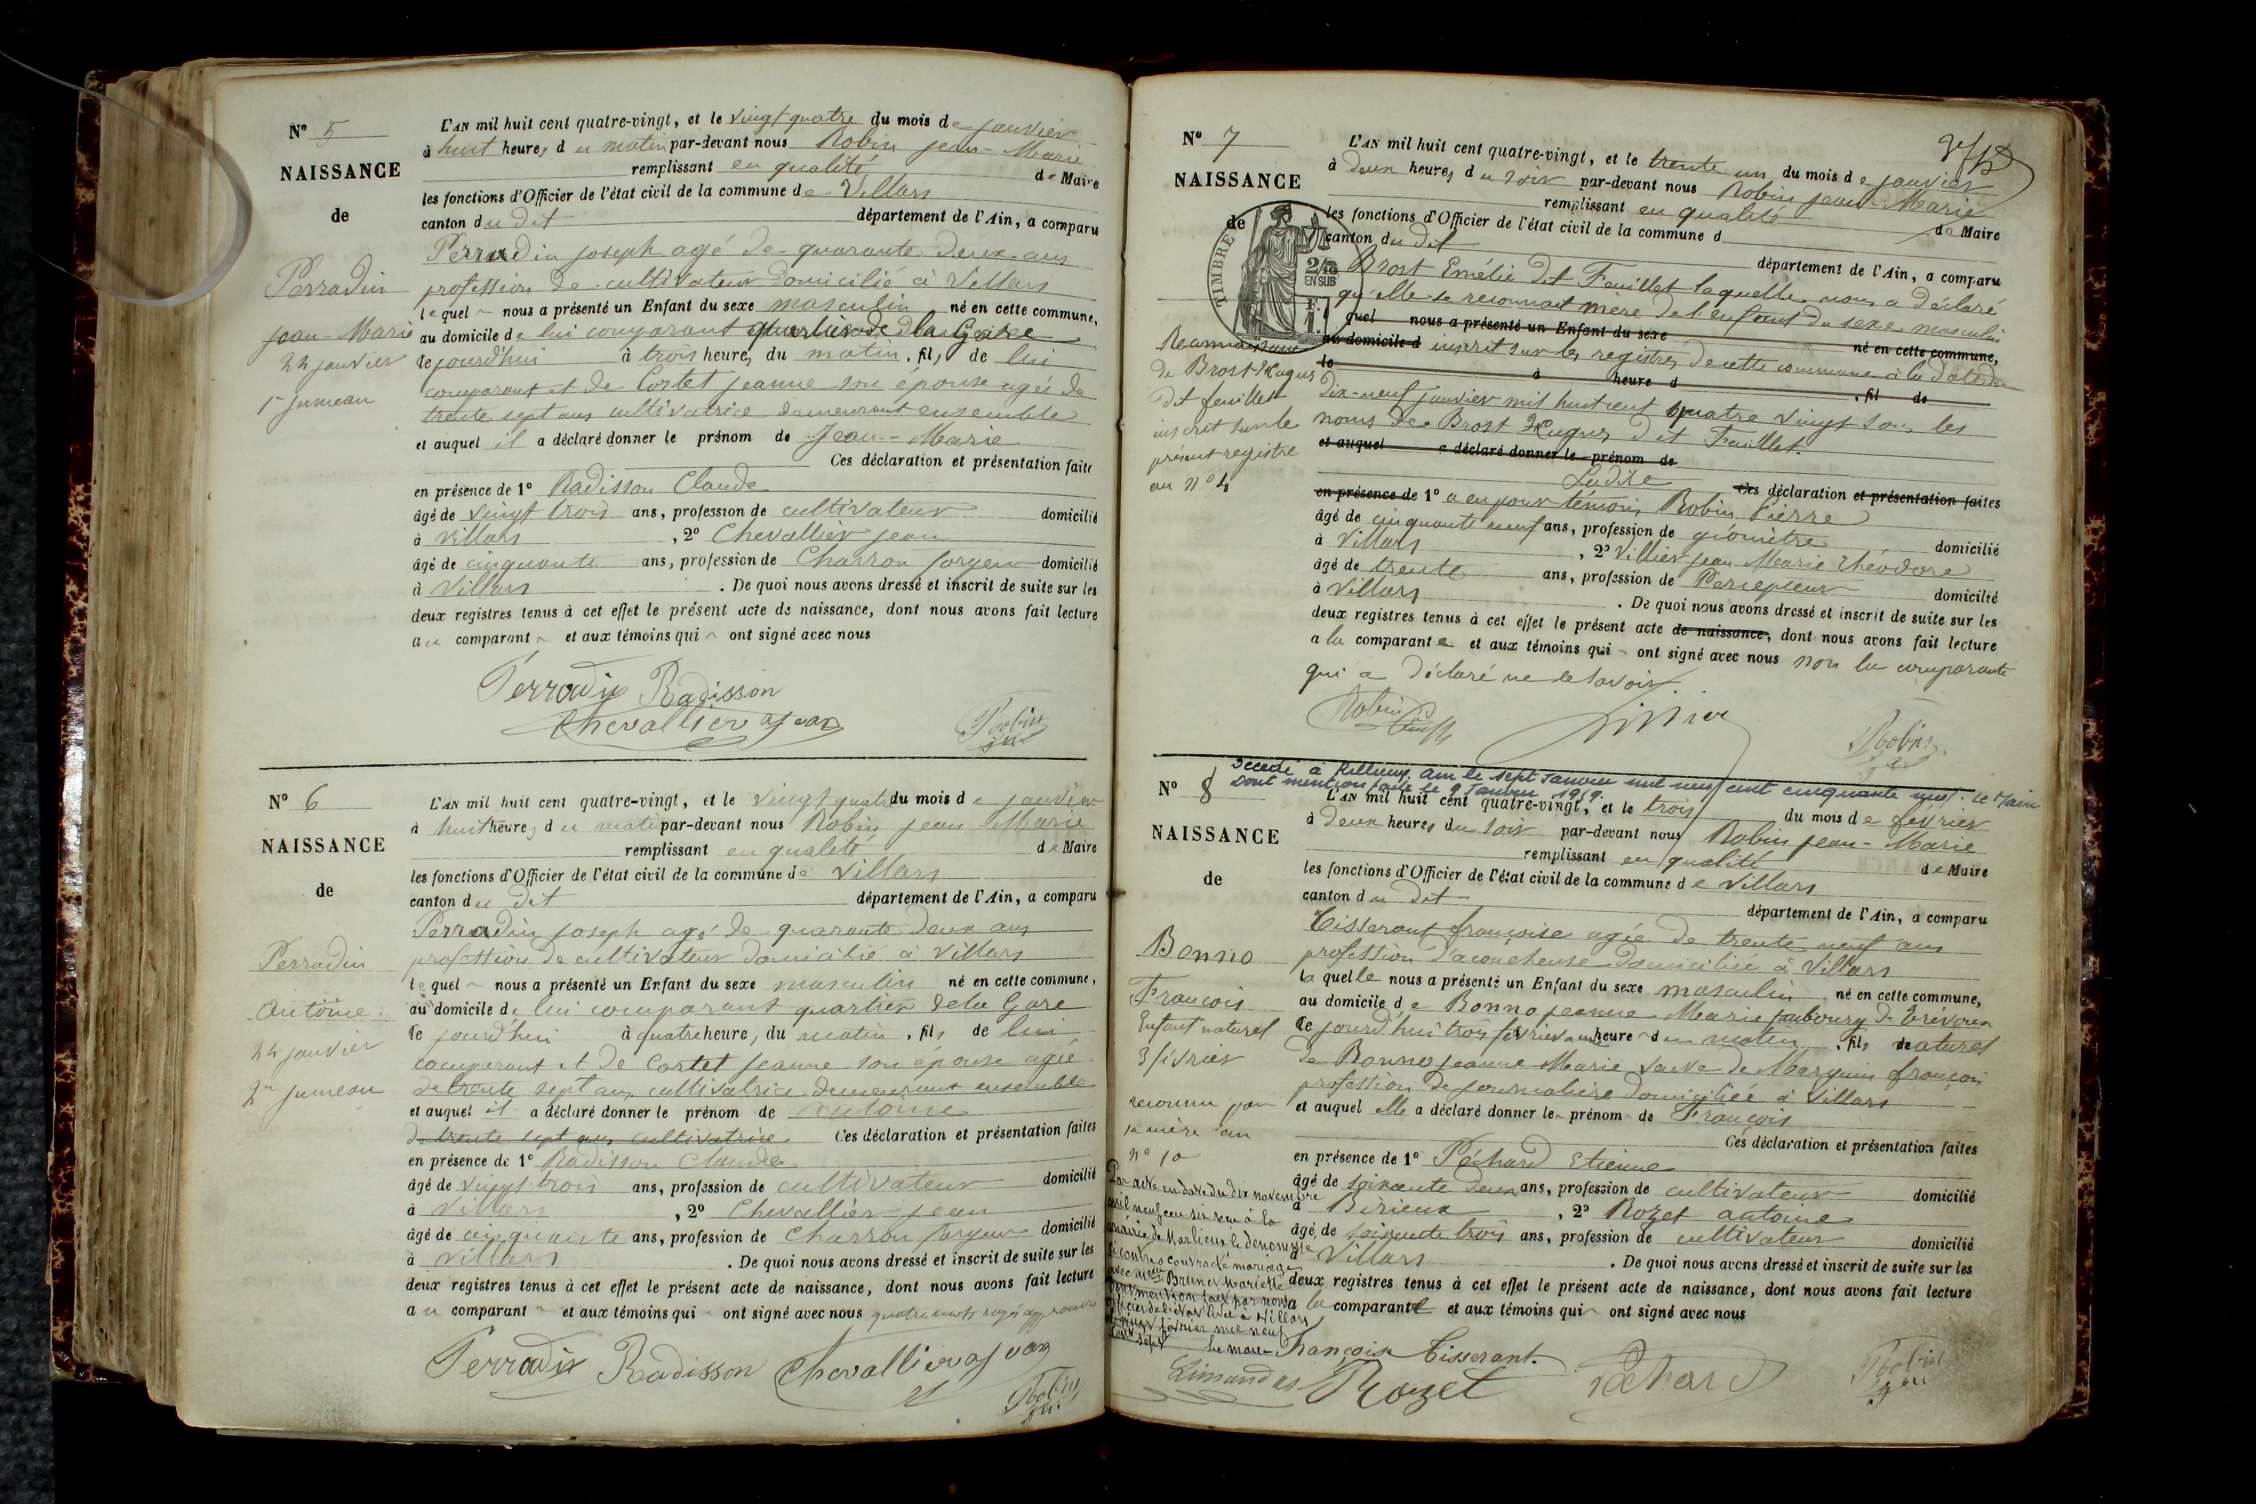 N° 5
NAISSANCE
de
Perradin
Jean-Marie
24 janvier
1er Jumeau
L'AN mil huit cent quatre-vingt, et le vingt quatre du mois de janvier
à huit heures du matin par-devant nous Robin Jean-Marie
remplissant en qualité de Maire
les fonctions d'Officier de l'état civil de la commune de Villars
canton du dit département de l'Ain, a comparu
Perradin Joseph agé de quarante deux ans
profession de cultivateur domicilié à Villars
lequel nous a présenté un Enfant du sexe masculin né en cette commune,
au domicile de lui comparant quartier de la Gare
le jourd'hui à trois heures du matin, fils de lui
comparant et de Cortet Jeanne son épouse agée de
trente sept ans cultivatrice demeurant ensemble
et auquel il a déclaré donner le prénom de Jean-Marie
Ces déclaration et présentation faite
en présence de 1° Radisson Claude
âgé de vingt trois ans, profession de cultivateur domicilié
à Villars, 2° Chevallier Jean
âgé de cinquante ans, profession de Charron forgeur domicilié
à Villars. De quoi nous avons dressé et inscrit de suite sur les
deux registres tenus à cet effet le présent acte de naissance, dont nous avons fait lecture
au comparant et aux témoins qui ont signé avec nous
Perradin Radisson
Chevallier Jean
Robin
N° 6
NAISSANCE
de
Perradin
Antoine
24 janvier
2me Jumeau
L'AN mil huit cent quatre-vingt, et le vingt quatre du mois de janvier
à huit heures du matin par-devant nous Robin Jean Marie
remplissant en qualité de Maire
les fonctions d'Officier de l'état civil de la commune de Villars
canton du dit département de l'Ain, a comparu
Perradin Joseph agé de quarante deux ans
profession de cultivateur domicilié à Villars
lequel nous a présenté un Enfant du sexe masculin né en cette commune,
au domicile de lui comparant quartier de la Gare
le jourd'hui à quatre heures du matin, fils de lui
comparant et de Cortet Jeanne son épouse agée
de trente sept ans cultivatrice demeurant ensemble
et auquel il a déclaré donner le prénom de Antoine
de trente sept ans cultivatrice Ces déclaration et présentation faites
en présence de 1° Radisson Claude
âgé de vingt trois ans, profession de cultivateur domicilié
à Villars, 2° Chevallier Jean
âgé de cinquante ans, profession de Charron forgeur domicilié
à Villars. De quoi nous avons dressé et inscrit de suite sur les
deux registres tenus à cet effet le présent acte de naissance, dont nous avons fait lecture
au comparant et aux témoins qui ont signé avec nous quatre mots rayés approuvés
Perradin Radisson Chevallier Jean
Robin
N° 7
NAISSANCE
de
TIMBRE
2/10
EN SUS
Reconnaissance
de Brost Hugues
dit feuillet
inscrit sur le
présent registre
au n° 4
L'AN mil huit cent quatre-vingt, et le trente un du mois de janvier
à deux heures du soir par-devant nous Robin Jean-Marie
remplissant en qualité de Maire
les fonctions d'Officier de l'état civil de la commune d
canton du dit département de l'Ain, a comparu
Brost Emélie dit Feuillet laquelle nous a déclaré
qu'elle se reconnait mère de l'enfant du sexe masculin
quel nous a présenté un Enfant du sexe né en cette commune,
au domicile d inscrit sur les registres de cette commune à la date du
le à heure d , fil de
dix-neuf janvier mil huit cent quatre vingt sous les
noms de Brost Hugues dit Feuillet.
et auquel a déclaré donner le prénom de
Ladite Ces déclaration et présentation faites
en présence de 1° a eu pour témoins Robin Pierre
âgé de cinquante neuf ans, profession de géomètre domicilié
à Villars, 2° Villier Jean Marie Théodore
âgé de trente ans, profession de Percepteur domicilié
à Villars. De quoi nous avons dressé et inscrit de suite sur les
deux registres tenus à cet effet le présent acte de naissance, dont nous avons fait lecture
a la comparante et aux témoins qui ont signé avec nous non la comparante
qui a déclaré ne le savoir.
Robin
Robin
Décédé à Rillieux Ain le sept Janvier mil neuf cent cinquante neuf. Le Maire
Dont mention faite le 9 Janvier 1959.
N° 8
NAISSANCE
de
Bonno
François
Enfant naturel
3 février
reconnu par
sa mère au
n° 10
Par acte en date du dix novembre
mil neuf cent six reçu à la
mairie de Marlieux le dénommé
ci contre a contracté mariage
avec Brunet Mariette
dont mention faite par nous
officier de l'état civil à Villars
février mil neuf
cent sept
Le maire
L'AN mil huit cent quatre-vingt, et le trois du mois de février
à deux heures du soir par-devant nous Robin Jean-Marie
remplissant en qualité de Maire
les fonctions d'Officier de l'état civil de la commune de Villars
canton du dit département de l'Ain, a comparu
Tisserant françoise agée de trente neuf ans
profession d'acoucheuse domiciliée à Villars
laquelle nous a présenté un Enfant du sexe masculin né en cette commune,
au domicile de Bonno Jeanne Marie faubourg de Trévoux
le jourd'hui trois février à une heure du matin, fils naturel
de Bonno Jeanne Marie veuve de Marguin françois
profession de journalière domiciliée à Villars
et auquel elle a déclaré donner le prénom de François
Ces déclaration et présentation faites
en présence de 1° Péchard Etienne
âgé de soixante deux ans, profession de cultivateur domicilié
à Birieux, 2° Rozet antoine
âgé de soixante trois ans, profession de cultivateur domicilié
à Villars. De quoi nous avons dressé et inscrit de suite sur les
deux registres tenus à cet effet le présent acte de naissance, dont nous avons fait lecture
a la comparante et aux témoins qui ont signé avec nous
Françoise Tisserant.
Rozet Péchard Robin